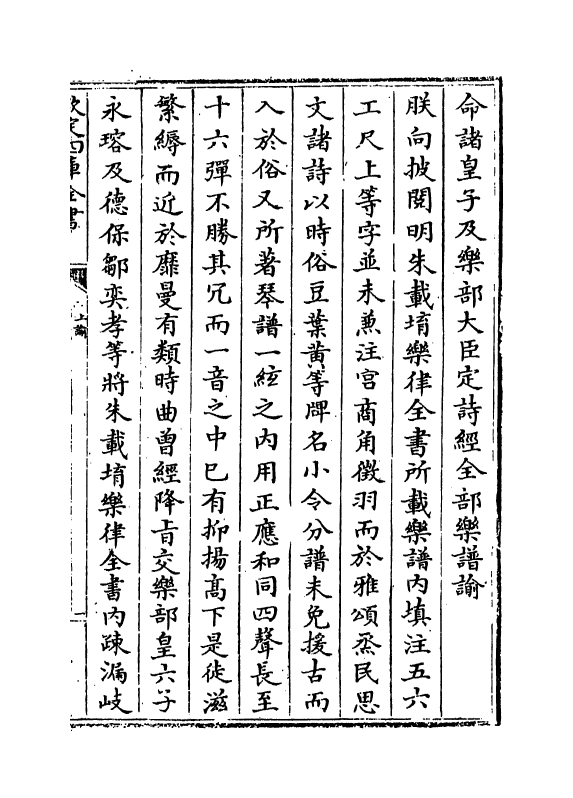 命諸皇子及樂部大臣定詩經全部樂譜諭
朕向披閱明朱載堉樂律全書所載樂譜內填注五六
工尺上等字並未兼注宮商角徵羽而於雅頌烝民思
文諸詩以時俗豆葉黃等牌名小令分譜未免援古而
入於俗又所著琴譜一絃之內用正應和同四聲長至
十六彈不勝其冗而一音之中已有抑揚高下是徒滋
繁縟而近於靡曼有類時曲曾經降旨交樂部皇六子
永瑢及德保鄒奕孝等將朱載堉樂律全書內疎漏歧
欽定四庫全書
上諭